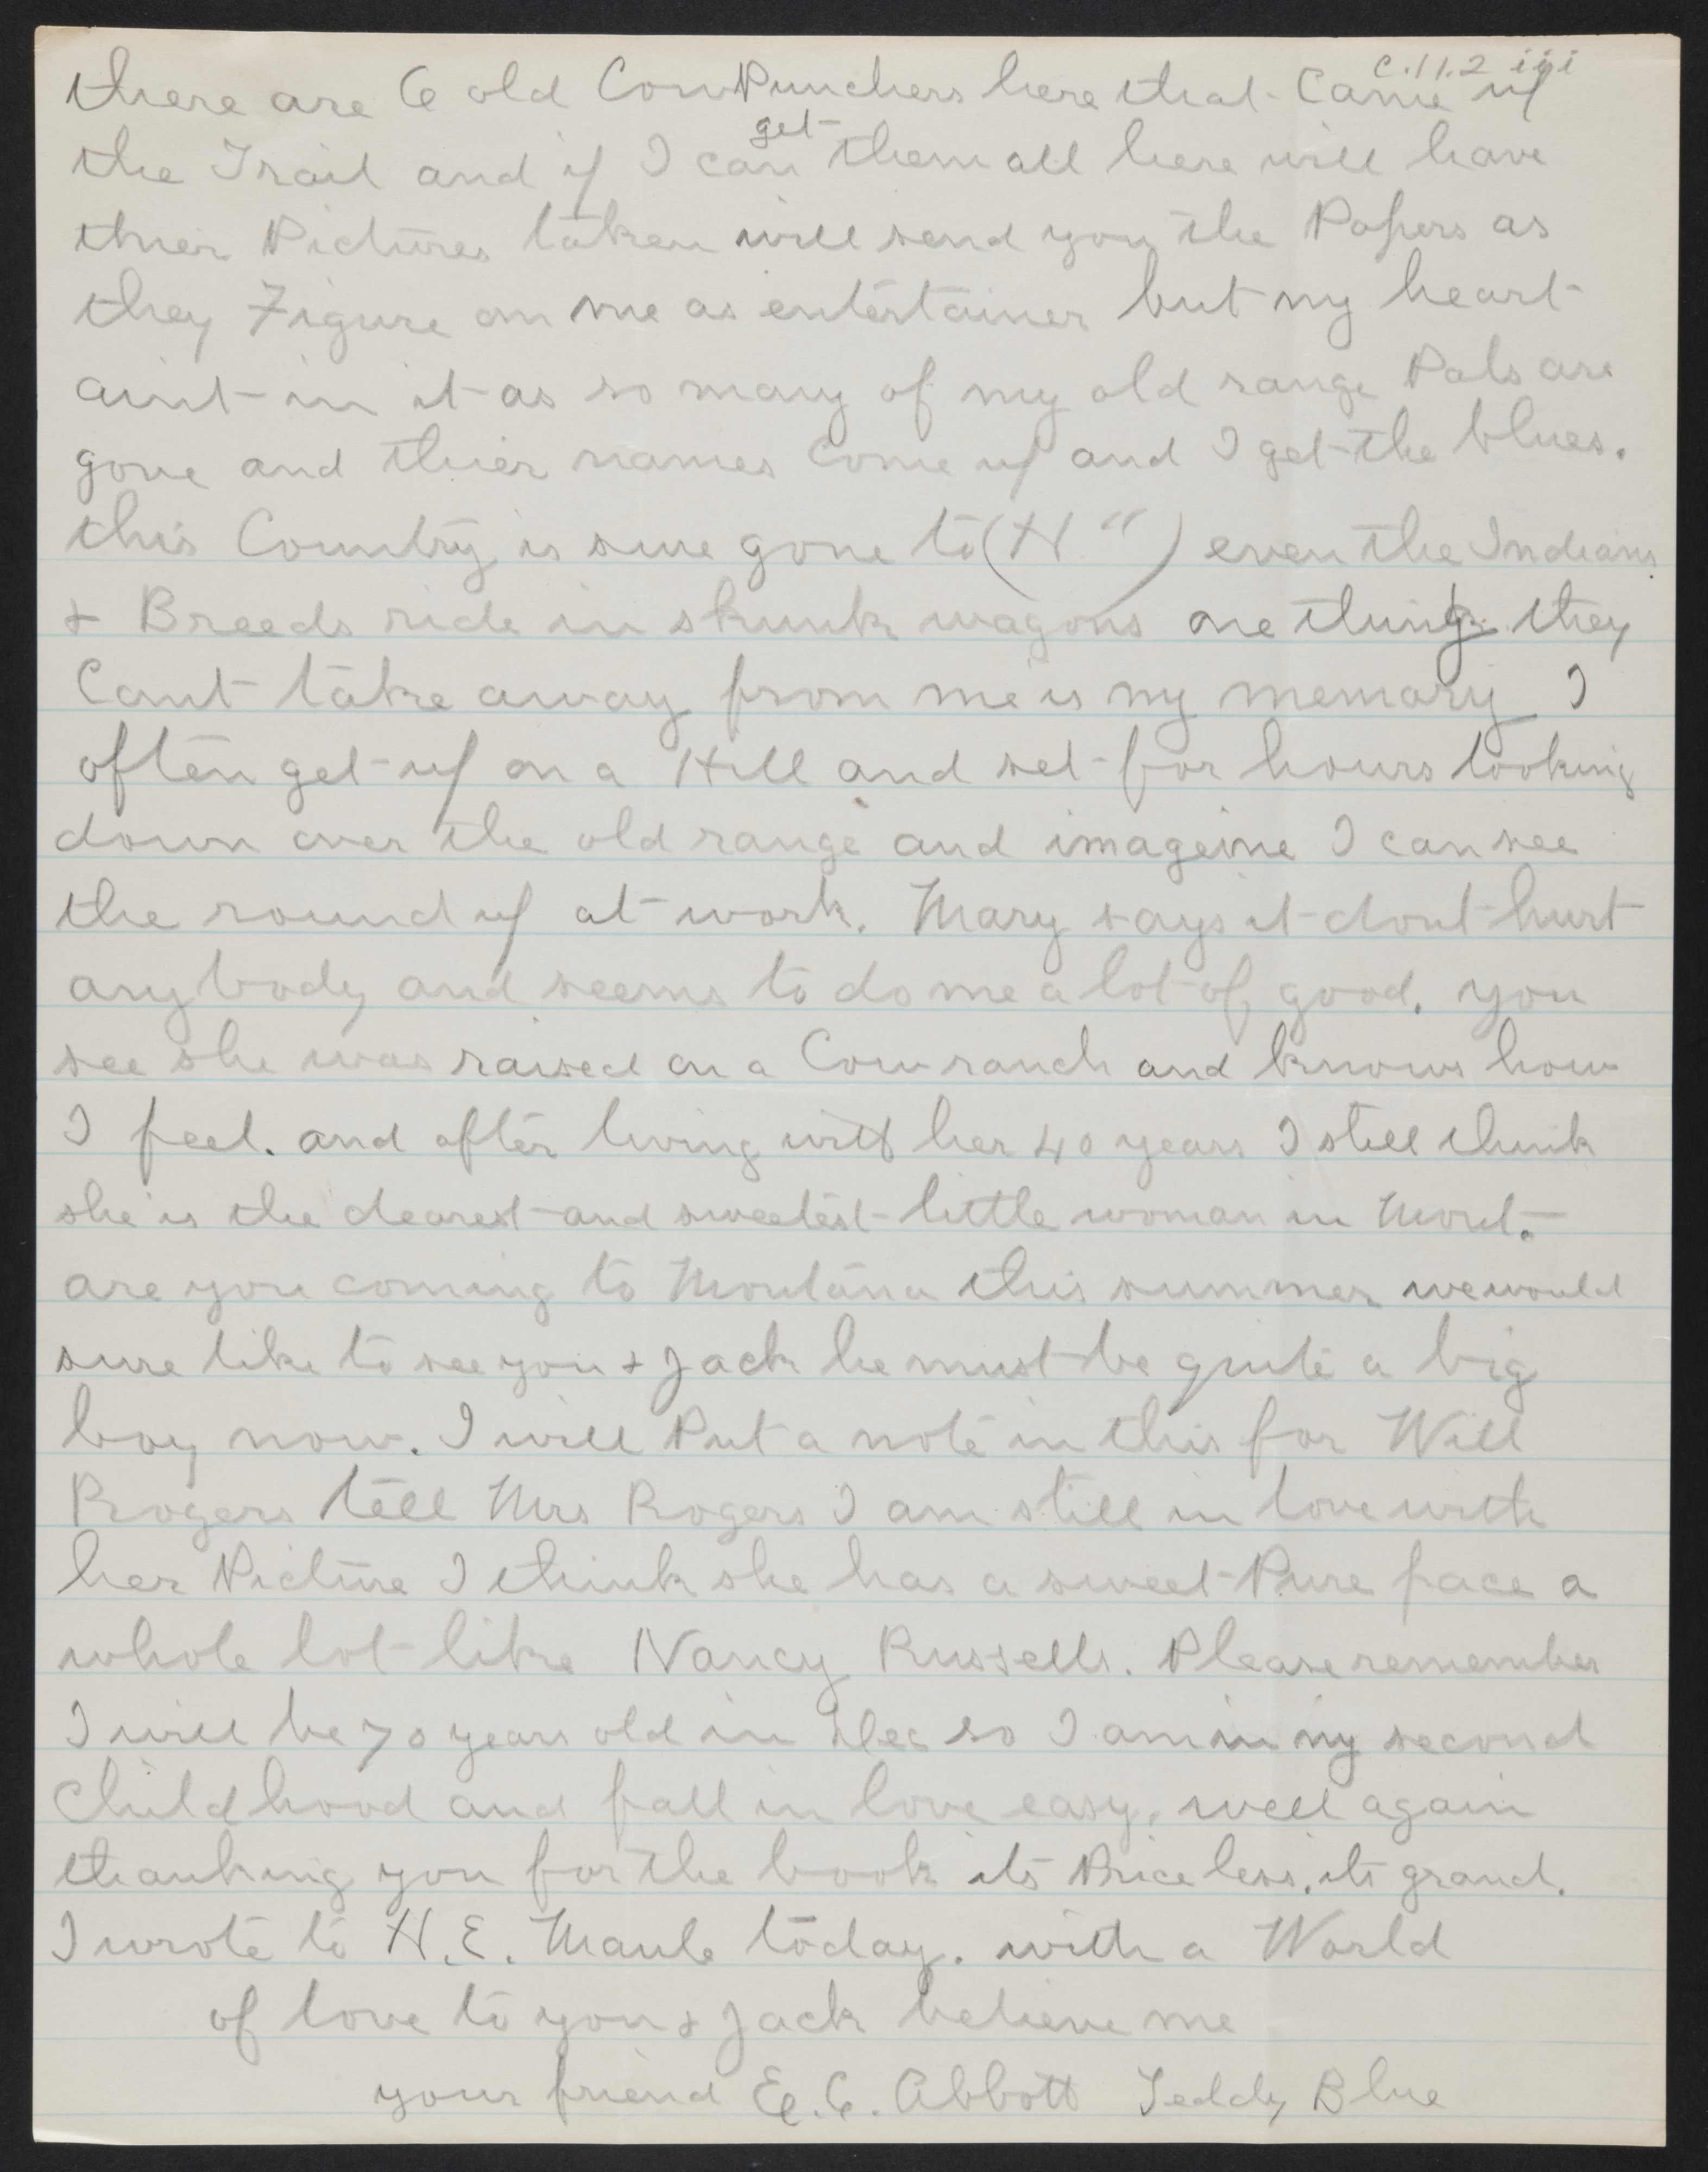 c.11.2 iii
there are 6 old CowPunchers here that Came up
the Trail and if I can get them all here will have
thier Pictures taken will send you the Papers as
they Figure on me as entertainer but my heart
aint in it as so many of my old range Pals are
gone and thier names Come up and I get the blues.
this Country is sure gone to (H ") even the Indians
& Breeds ride in skunk wagons one thing they
Cant take away from me is my memory I
often get up on a Hill and set for hours looking
down over the old range and imageine I can see
the round up at work. Mary says it dont hurt
any body and seems to do me a lot of good. you
see she was raised on a Cow ranch and knows how
I feel. and after living with her 40 years I still think
she is the dearest and sweetest little woman in Mont.
are you coming to Montana this summer we would
sure like to see you & Jack he must be quite a big
boy now. I will Put a note in this for Will
Rogers tell Mrs Rogers I am still in love with
her Picture I think she has a sweet Pure face a
whole lot like Nancy Russells. Please remember
I will be 70 years old in Dec so I am in my second
Childhood and fall in love easy. well again
thanking you for the book its Priceless. its grand.
I wrote to H.E. Maule today. with a World
of love to you & Jack believe me
your friend E.C. Abbott Teddy Blue